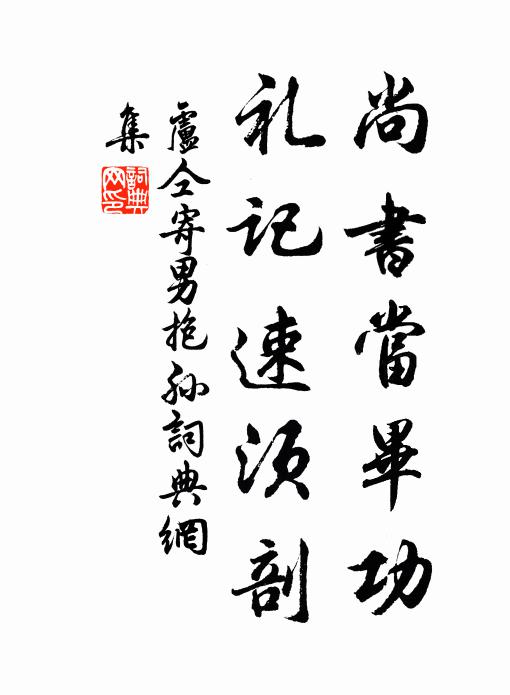 尚書當畢功
礼記速須剖
盧仝寄男抱孫詞典網
集
詞典网印